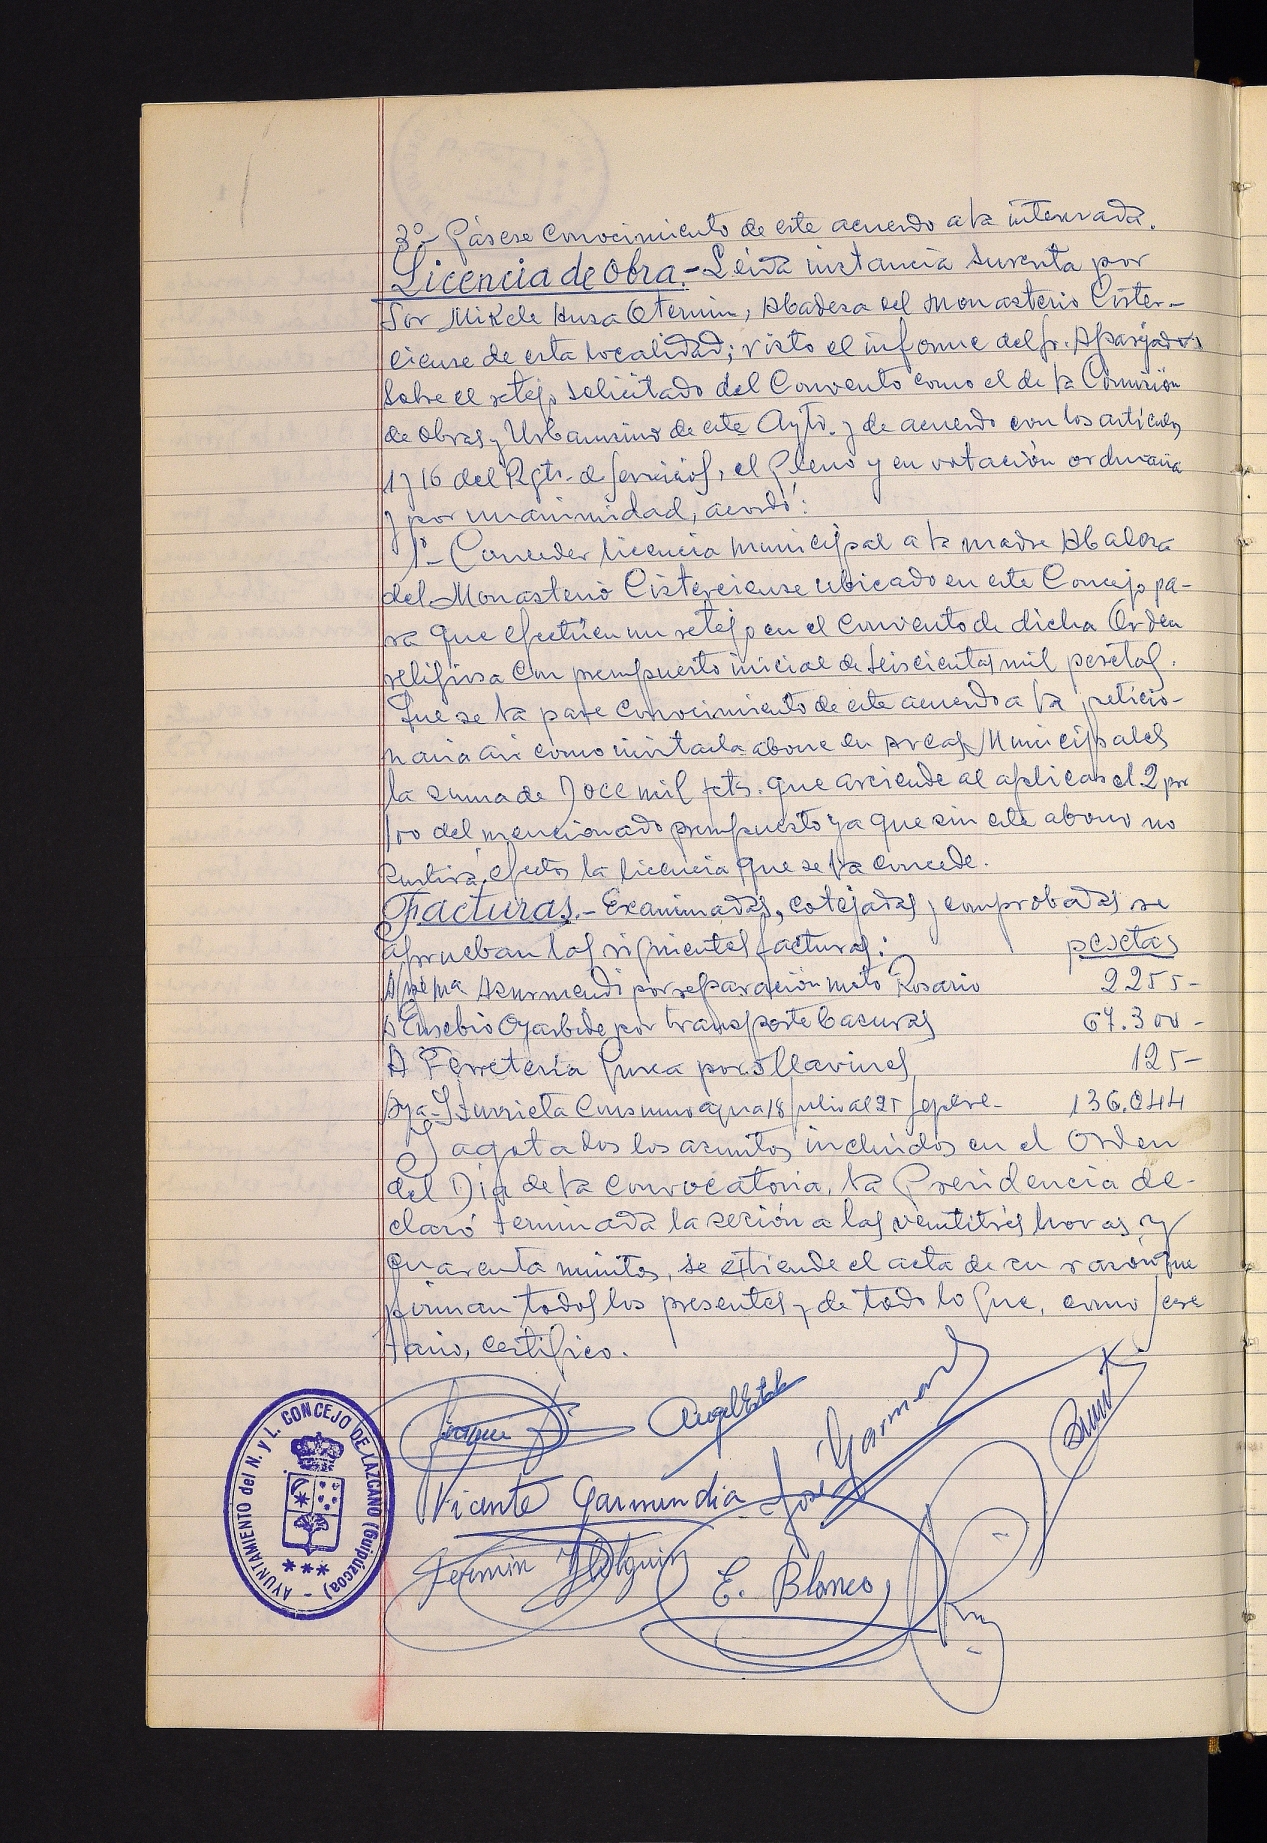 3º- Pásese conocimiento de este acuerdo a la interesada.
Licencia de Obra.- Leida instancia suscrita por
Sor Mikele Ausa Otermin, Abadesa del Monasterio Cister-
ciense de esta localidad; visto el informe del Sr. Aparejador
sobre el retejo solicitado del Convento como el de la Comisión
de Obras y Urbanismo de este Ayto. y de acuerdo con los artículos
1 y 16 del Rgto. de Servicios, el Pleno y en votación ordinaria
y por unanimidad, acordó:
1º- Conceder licencia municipal a la madre Abadesa
del Monasterio Cisterciense ubicado en este Concejo pa-
ra que efectúen un retejo en el Convento de dicha Orden
religiosa con presupuesto inicial de seiscientas mil pesetas.
Que se la pase conocimiento de este acuerdo a la peticio-
naria asi como abone en arcas Municipales
la suma de Doce mil pts. que asciende al aplicar el 2 por
100 del mencionado presupuesto ya que sin este abono no
surtirá efectos la licencia que se la concede.
Facturas.- Examinadas, cotejadas y comprobadas se
aprueban las siguientes facturas: pesetas
Azurmendi por reparación moto Rosario 2255-
A Eusebio Oyarbide por transporte basuras 67.300-
A Ferretería por llavines 125-
Iturrieta Consumo agua 18 Julio al 25 Sepbre- 136.044
Y agotados los asuntos incluidos en el Orden
del Dia de la Convocatoria, la Presidencia de-
claró terminada la sesión a las veintitrés horas y
quarenta minutos, se extiende el acta de su razón que
firman todos los presentes y de todo lo que, como Secre
tario, certifico.
José Garmendi
Vicente Garmendia
Fermin
E. Blanco
AYUNTAMIENTO del N. y L. CONCEJO DE LAZCANO (Guipúzcoa)